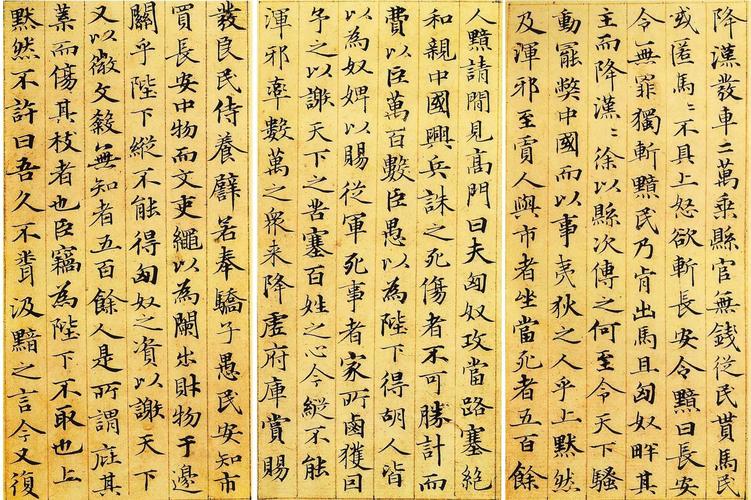 降漢發車二萬乘縣官無錢從民貰馬民
或匿馬〻不具上怒欲斬長安令黯曰長安
令無罪獨斬黯民乃肯出馬且匈奴畔其
主而降漢〻徐以縣次傳之何至令天下騷
動罷弊中國而以事夷狄之人乎上默然
及渾邪至賈人與市者坐當死者五百餘
人黯請閒見高門曰夫匈奴攻當路塞絕
和親中國興兵誅之死傷者不可勝計而
費以巨萬百數臣愚以為陛下得胡人皆
以為奴婢以賜從軍死事者家所鹵獲因
予之以謝天下之苦塞百姓之心今縱不能
渾邪率數萬之衆来降虛府庫賞賜
發良民侍養譬若奉驕子愚民安知市
買長安中物而文吏繩以為闌出財物于邊
關乎陛下縱不能得匈奴之資以謝天下
又以微文殺無知者五百餘人是所謂庇其
葉而傷其枝者也臣竊為陛下不取也上
默然不許曰吾久不聞汲黯之言今又復